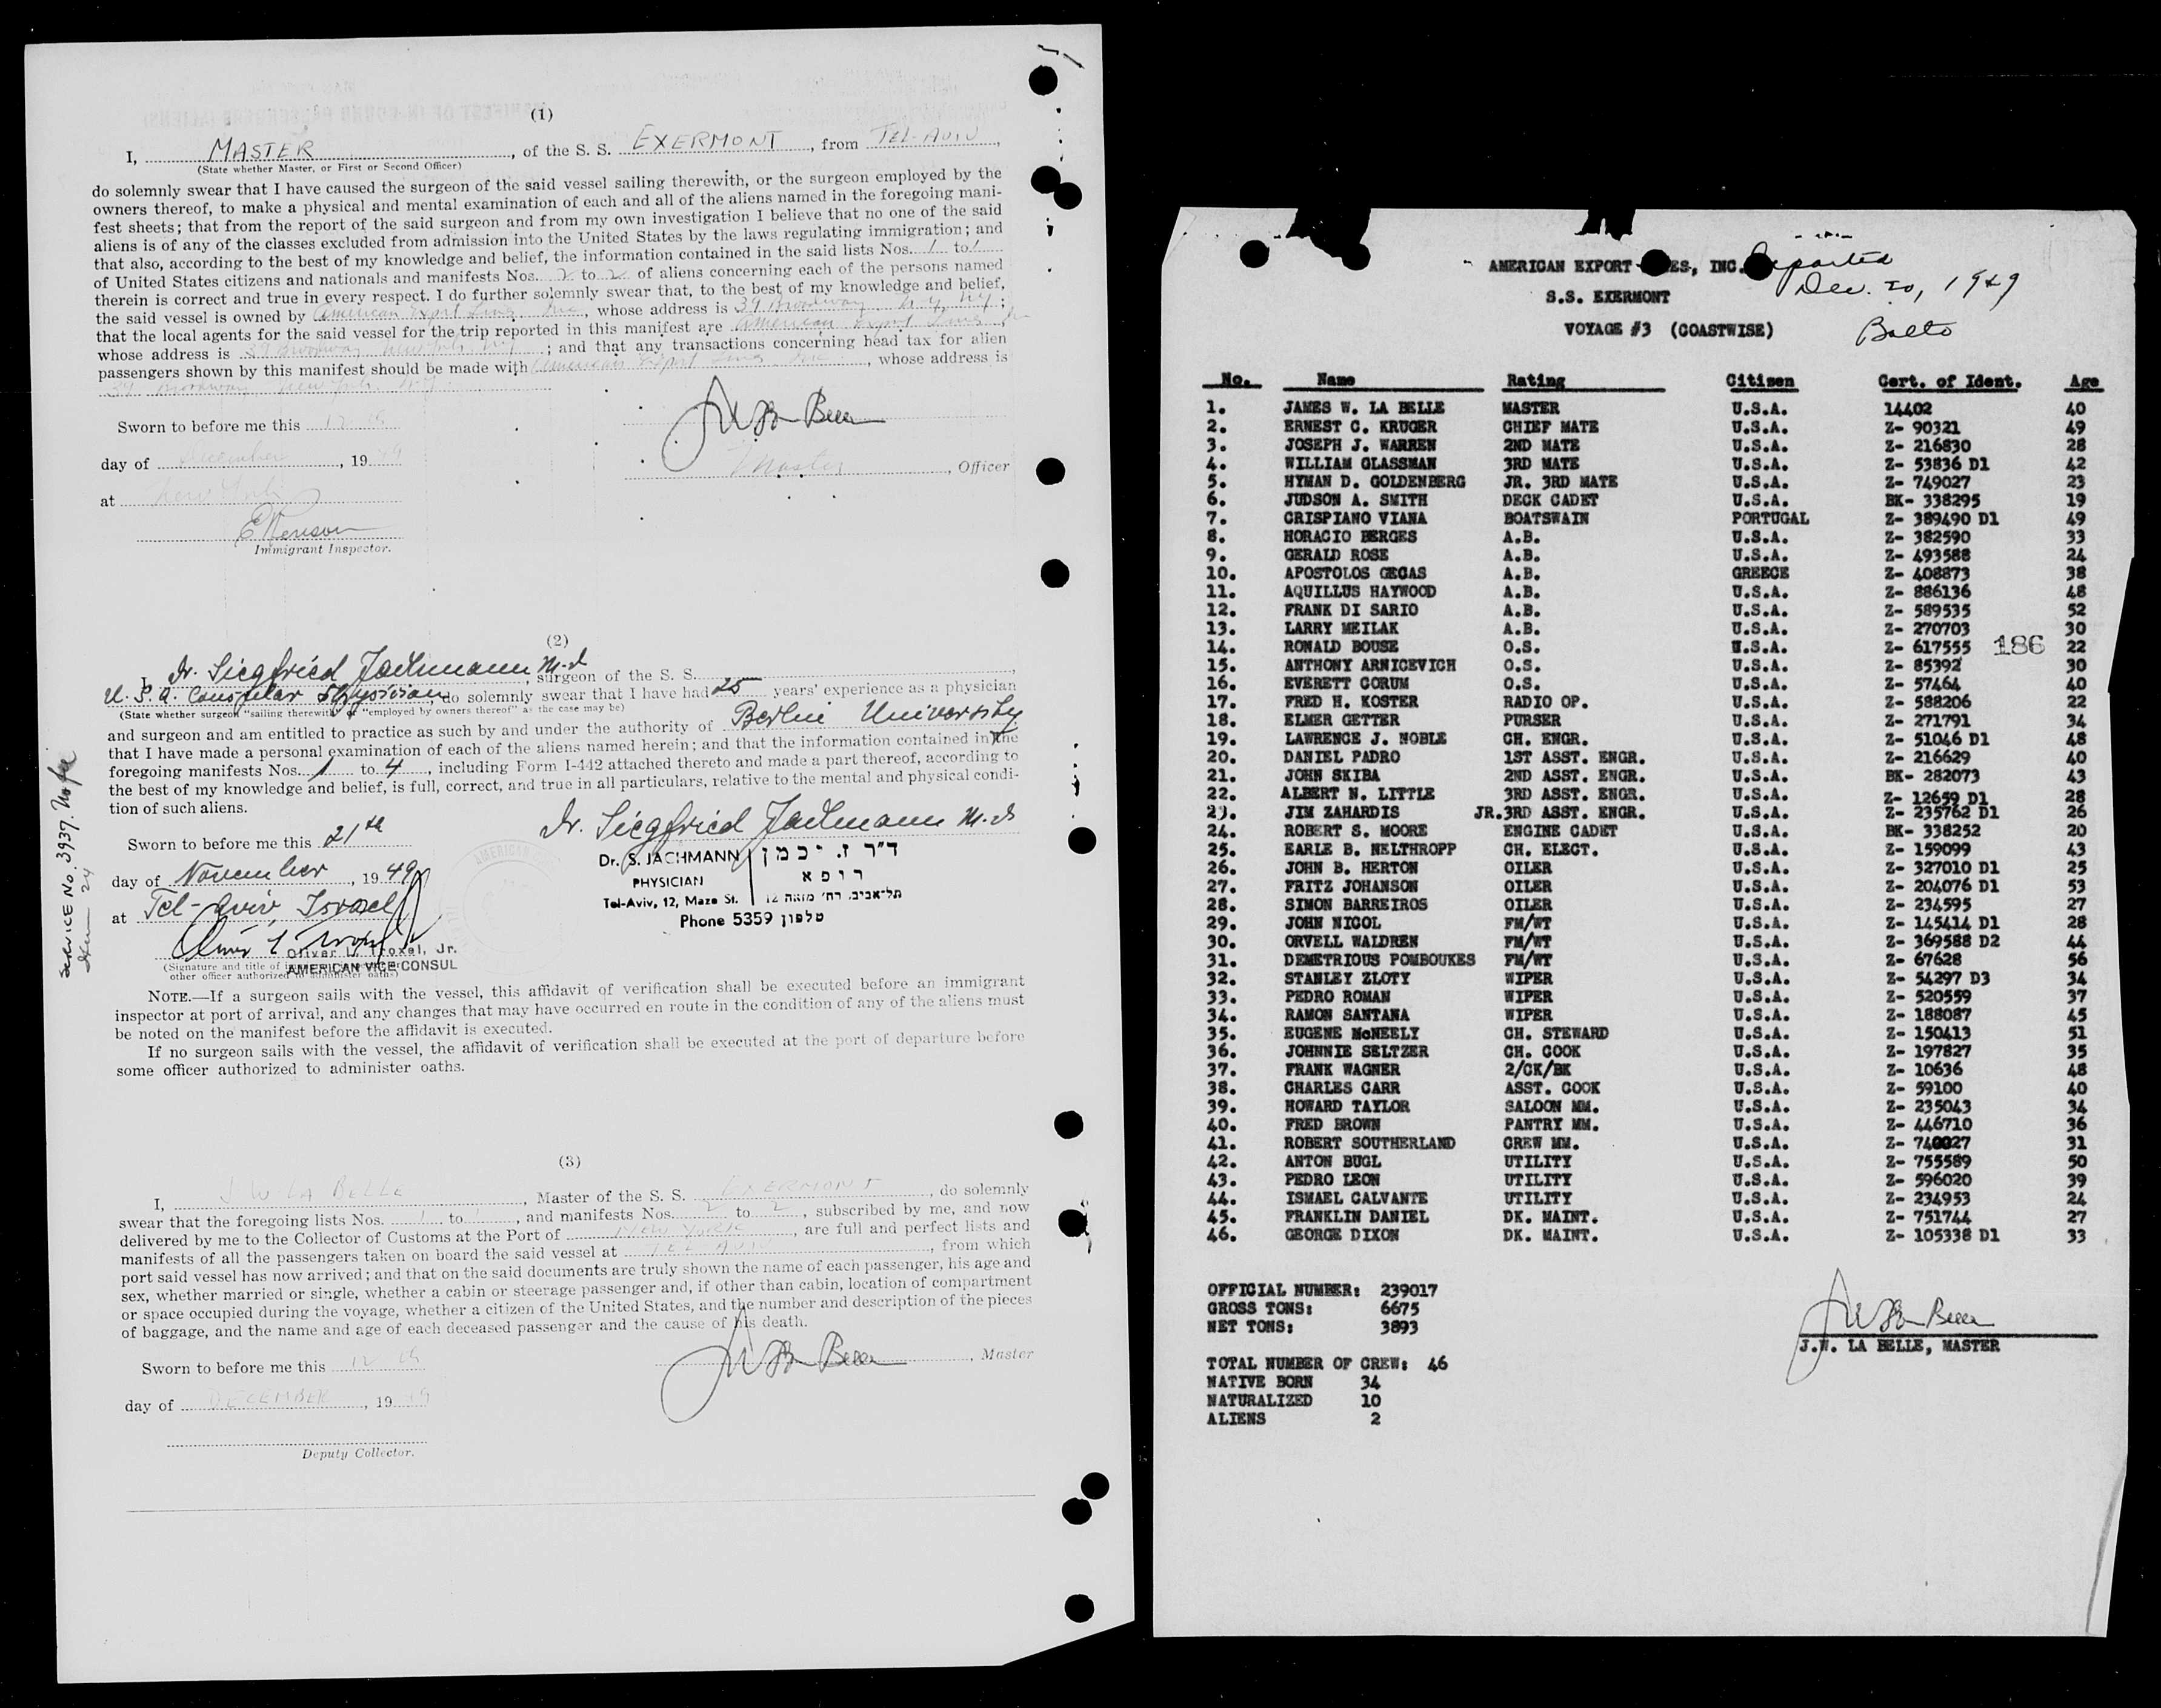 (1)
I, MASTER, of the S. S. EXERMONT, from TEL-AVIV,
(State whether Master, or First or Second Officer)
do solemnly swear that I have caused the surgeon of the said vessel sailing therewith, or the surgeon employed by the
owners thereof, to make a physical and mental examination of each and all of the aliens named in the foregoing mani-
fest sheets; that from the report of the said surgeon and from my own investigation I believe that no one of the said
aliens is of any of the classes excluded from admission into the United States by the laws regulating immigration; and
that also, according to the best of my knowledge and belief, the information contained in the said lists Nos. 1 to 1
of United States citizens and nationals and manifests Nos. 2 to 2 of aliens concerning each of the persons named
therein is correct and true in every respect. I do further solemnly swear that, to the best of my knowledge and belief,
the said vessel is owned by American Export Lines Inc, whose address is 39 Broadway N.Y. N.Y.;
that the local agents for the said vessel for the trip reported in this manifest are American Export Lines Inc,
whose address is 39 Broadway New York, N.Y.; and that any transactions concerning head tax for alien
passengers shown by this manifest should be made with American Export Lines Inc., whose address is
39 Broadway New York N.Y.
Sworn to before me this 12 th
day of December, 1949
at New York
Master, Officer
Immigrant Inspector.
(2)
I, Dr. Siegfried Jachmann M.d, surgeon of the S. S.
U.S.A. Consular Physician, do solemnly swear that I have had 25 years' experience as a physician
(State whether surgeon "sailing therewith" or "employed by owners thereof" as the case may be)
and surgeon and am entitled to practice as such by and under the authority of Berlin University
that I have made a personal examination of each of the aliens named herein; and that the information contained in the
foregoing manifests Nos. 1 to 4, including Form I-442 attached thereto and made a part thereof, according to
the best of my knowledge and belief, is full, correct, and true in all particulars, relative to the mental and physical condi-
tion of such aliens.
Dr. Siegfried Jachmann M.d
Sworn to before me this 21st
day of November, 1949
at Tel-Aviv, Israel
Dr. S. JACHMANN
PHYSICIAN
Tel-Aviv, 12, Maze St.
ד"ר ז. יכמן
רופא
תל-אביב, רח' מזאה 12
Phone 5359 טלפון
Oliver L. Troxel, Jr.
AMERICAN VICE CONSUL
(Signature and title of
other officer authorized to administer oaths)
Service No. 3937.
Item 24
NOTE.—If a surgeon sails with the vessel, this affidavit of verification shall be executed before an immigrant
inspector at port of arrival, and any changes that may have occurred en route in the condition of any of the aliens must
be noted on the manifest before the affidavit is executed.
If no surgeon sails with the vessel, the affidavit of verification shall be executed at the port of departure before
some officer authorized to administer oaths.
(3)
I, J W LA BELLE, Master of the S. S. EXERMONT, do solemnly
swear that the foregoing lists Nos. 1 to 1, and manifests Nos. 2 to 2, subscribed by me, and now
delivered by me to the Collector of Customs at the Port of NEW YORK, are full and perfect lists and
manifests of all the passengers taken on board the said vessel at TEL AVIV, from which
port said vessel has now arrived; and that on the said documents are truly shown the name of each passenger, his age and
sex, whether married or single, whether a cabin or steerage passenger and, if other than cabin, location of compartment
or space occupied during the voyage, whether a citizen of the United States, and the number and description of the pieces
of baggage, and the name and age of each deceased passenger and the cause of his death.
Sworn to before me this 12 th
day of DECEMBER, 1949
J W La Belle, Master
Deputy Collector.
AMERICAN EXPORT LINES, INC.
S.S. EXERMONT
VOYAGE #3 (COASTWISE)
Departed
Dec. 20, 1949
Balto
No. Name Rating Citizen Cert. of Ident. Age
1. JAMES W. LA BELLE MASTER U.S.A. 14402 40
2. ERNEST C. KRUGER CHIEF MATE U.S.A. Z- 90321 49
3. JOSEPH J. WARREN 2ND MATE U.S.A. Z- 216830 28
4. WILLIAM GLASSMAN 3RD MATE U.S.A. Z- 53836 D1 42
5. HYMAN D. GOLDENBERG JR. 3RD MATE U.S.A. Z- 749027 23
6. JUDSON A. SMITH DECK CADET U.S.A. BK- 338295 19
7. CRISPIANO VIANA BOATSWAIN PORTUGAL Z- 389490 D1 49
8. HORACIO BERGES A.B. U.S.A. Z- 382590 33
9. GERALD ROSE A.B. U.S.A. Z- 493588 24
10. APOSTOLOS GEGAS A.B. GREECE Z- 408873 38
11. AQUILLUS HAYWOOD A.B. U.S.A. Z- 886136 48
12. FRANK DI SARIO A.B. U.S.A. Z- 589535 52
13. LARRY MEILAK A.B. U.S.A. Z- 270703 30
14. RONALD BOUSE O.S. U.S.A. Z- 617555 186 22
15. ANTHONY ARNICEVICH O.S. U.S.A. Z- 85392 30
16. EVERETT CORUM O.S. U.S.A. Z- 57464 40
17. FRED H. KOSTER RADIO OP. U.S.A. Z- 588206 22
18. ELMER GETTER PURSER U.S.A. Z- 271791 34
19. LAWRENCE J. NOBLE CH. ENGR. U.S.A. Z- 51046 D1 48
20. DANIEL PADRO 1ST ASST. ENGR. U.S.A. Z- 216629 40
21. JOHN SKIBA 2ND ASST. ENGR. U.S.A. BK- 282073 43
22. ALBERT N. LITTLE 3RD ASST. ENGR. U.S.A. Z- 12659 D1 28
23. JIM ZAHARDIS JR.3RD ASST. ENGR. U.S.A. Z- 235762 D1 26
24. ROBERT S. MOORE ENGINE CADET U.S.A. BK- 338252 20
25. EARLE B. NELTHROPP CH. ELECT. U.S.A. Z- 159099 43
26. JOHN B. HERTON OILER U.S.A. Z- 327010 D1 25
27. FRITZ JOHANSON OILER U.S.A. Z- 204076 D1 53
28. SIMON BARREIROS OILER U.S.A. Z- 234595 27
29. JOHN NICOL FM/WT U.S.A. Z- 145414 D1 28
30. ORVELL WALDREN FM/WT U.S.A. Z- 369588 D2 44
31. DEMETRIOUS POMBOUKES FM/WT U.S.A. Z- 67628 56
32. STANLEY ZLOTY WIPER U.S.A. Z- 54297 D3 34
33. PEDRO ROMAN WIPER U.S.A. Z- 520559 37
34. RAMON SANTANA WIPER U.S.A. Z- 188087 45
35. EUGENE McNEELY CH. STEWARD U.S.A. Z- 150413 51
36. JOHNNIE SELTZER CH. COOK U.S.A. Z- 197827 35
37. FRANK WAGNER 2/CK/BK U.S.A. Z- 10636 48
38. CHARLES CARR ASST. COOK U.S.A. Z- 59100 40
39. HOWARD TAYLOR SALOON MM. U.S.A. Z- 235043 34
40. FRED BROWN PANTRY MM. U.S.A. Z- 446710 36
41. ROBERT SOUTHERLAND CREW MM. U.S.A. Z- 740027 31
42. ANTON BUGL UTILITY U.S.A. Z- 755589 50
43. PEDRO LEON UTILITY U.S.A. Z- 596020 39
44. ISMAEL CALVANTE UTILITY U.S.A. Z- 234953 24
45. FRANKLIN DANIEL DK. MAINT. U.S.A. Z- 751744 27
46. GEORGE DIXON DK. MAINT. U.S.A. Z- 105338 D1 33
OFFICIAL NUMBER: 239017
GROSS TONS: 6675
NET TONS: 3893
J.W. LA BELLE, MASTER
TOTAL NUMBER OF CREW: 46
NATIVE BORN 34
NATURALIZED 10
ALIENS 2